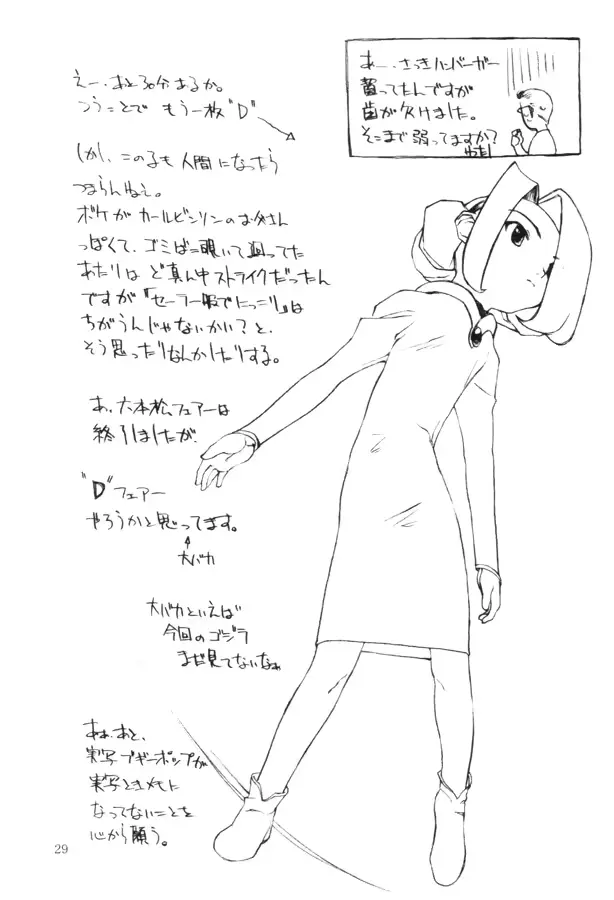 えー、あと30分あるか。
つうことで もう一枚"D"
しかし、この子も人間になったら
つまらんねぇ。
ボケがカールビンソンのお父さん
っぽくて、ゴミばこ覗いて回ってた
あたりは ど真ん中ストライクだったん
ですが「セーラー服でにっこり」は
ちがうんじゃないかい?と、
そう思ったりなんかしたりする。
あ、六本松フェアーは
終了しましたが、
"D"フェアー
やろうかと思ってます。
大バカ
大バカといえば
今回のゴジラ
まだ見てないなぁ
あぁ、あと、
実写ブギーポップが
実写ときメモに
なってないことを
心から願う。
あー、さっきハンバーガー
買ってたんですが
歯が欠けました。
そこまで弱ってますか?
わたし
29